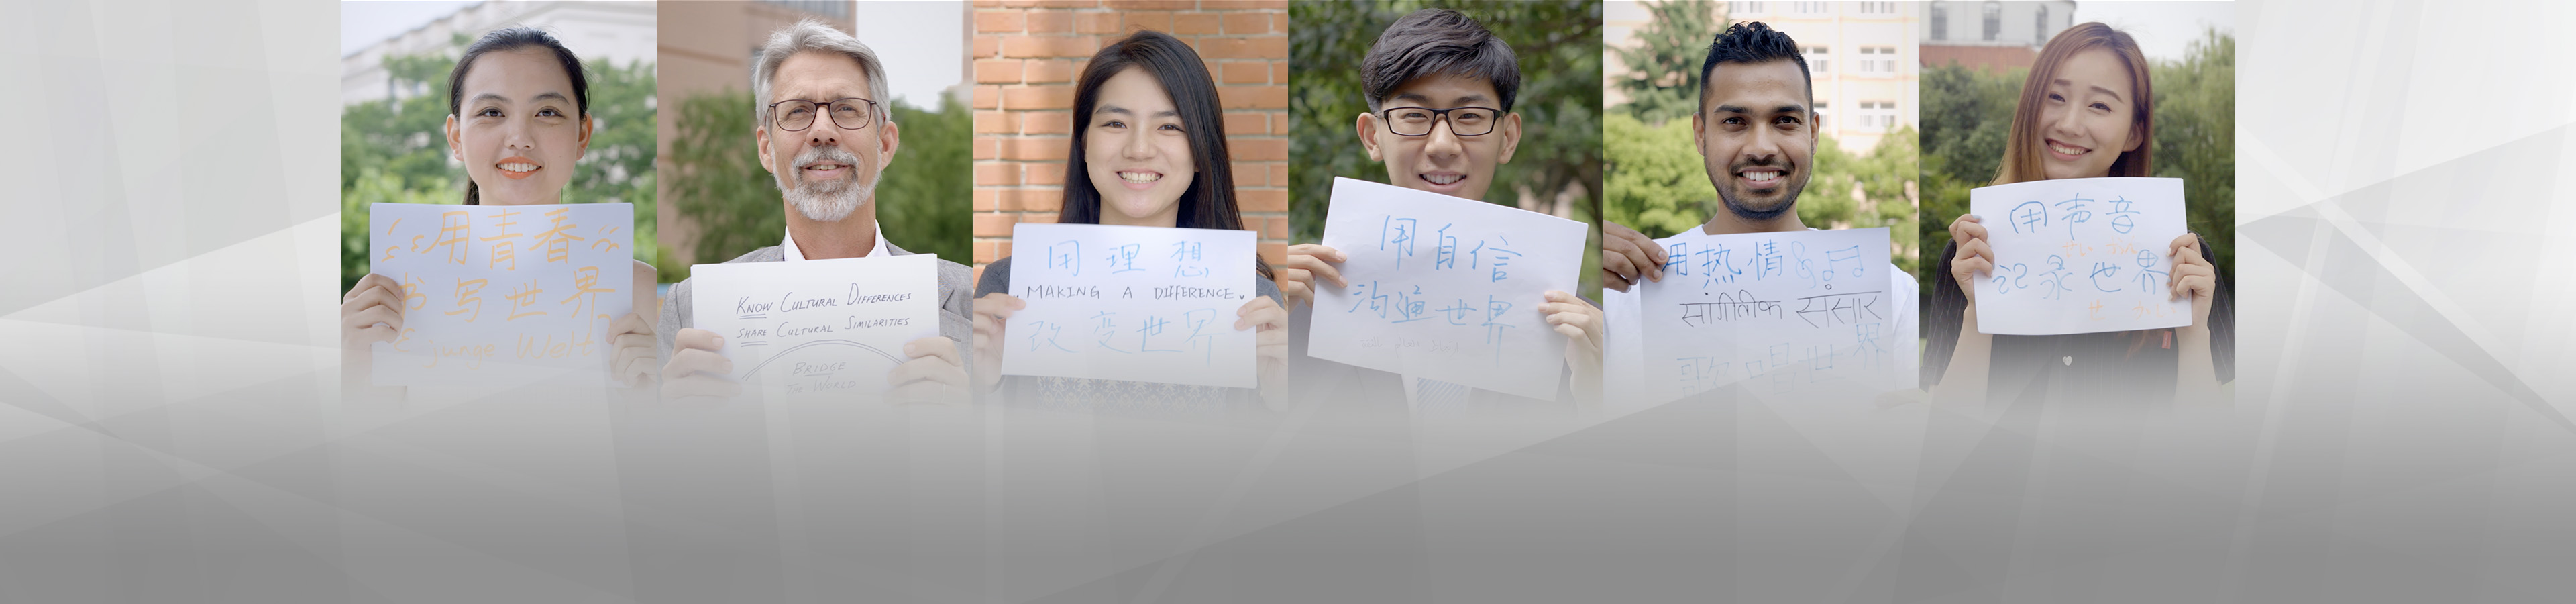 用青春
书写世界
KNOW CULTURAL DIFFERENCES
SHARE CULTURAL SIMILARITIES
BRIDGE
THE WORLD
用理想
MAKING A DIFFERENCE
改变世界
用自信
沟通世界
用热情
सांगीतिक संसार
歌唱世界
用声音
记录世界